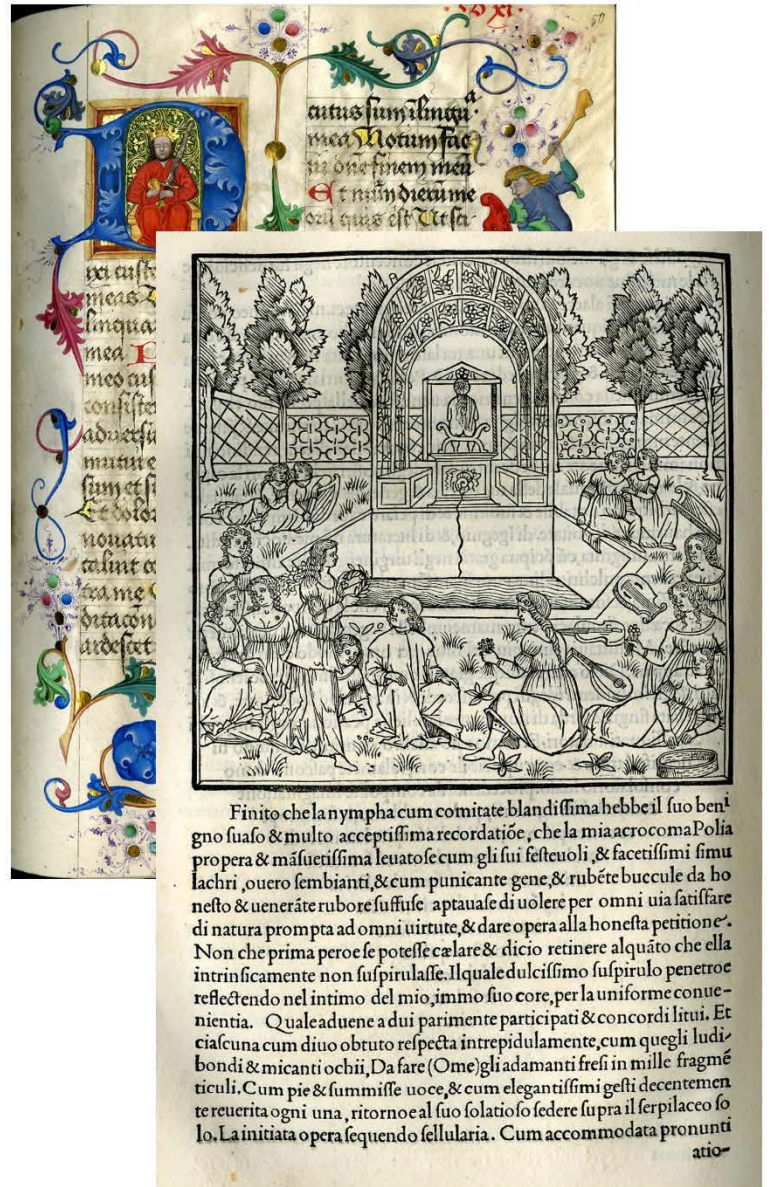 xi.
50
cutus sum ĩ lingua
mea Notum fac
m dñe finem meũ
Et nũm dierũ me
oru quis est Ut sci
ixi custo
meas
lingua
mea
meo cus
consiste
adversu
mutui e
sum et si
Et dolor
novatu
caluit co
tea me
ditacõn
ardescet
Finito che la nympha cum comitate blandissima hebbe il suo beni
gno suaso & multo acceptissima recordatiõe, che la mia acrocoma Polia
propera & mãsuetissima leuatose cum gli sui festeuoli, & facetissimi simu
lachri, ouero sembianti, & cum punicante gene, & rubẽte buccule da ho
nesto & uenerãte rubore suffuse aptauase di uolere per omni uia satisfare
di natura prompta ad omni uirtute, & dare opera alla honesta petitione.
Non che prima peroe se potesse cælare & dicio retinere alquãto che ella
intrinsicamente non suspirulasse. Ilquale dulcissimo suspirulo penetroe
reflectendo nel intimo del mio, immo suo core, per la uniforme conue-
nientia. Quale aduene a dui parimente participati & concordi litui. Et
ciascuna cum diuo obtuto respecta intrepidulamente, cum quegli ludi-
bondi & micanti ochii, Da fare (Ome) gli adamanti fresi in mille fragmẽ
ticuli. Cum pie & summisse uoce, & cum elegantissimi gesti decentemen
te reuerita ogni una, ritornoe al suo solatioso sedere supra il serpilaceo so
lo. La initiata opera sequendo sellularia. Cum accommodata pronunti
atio-